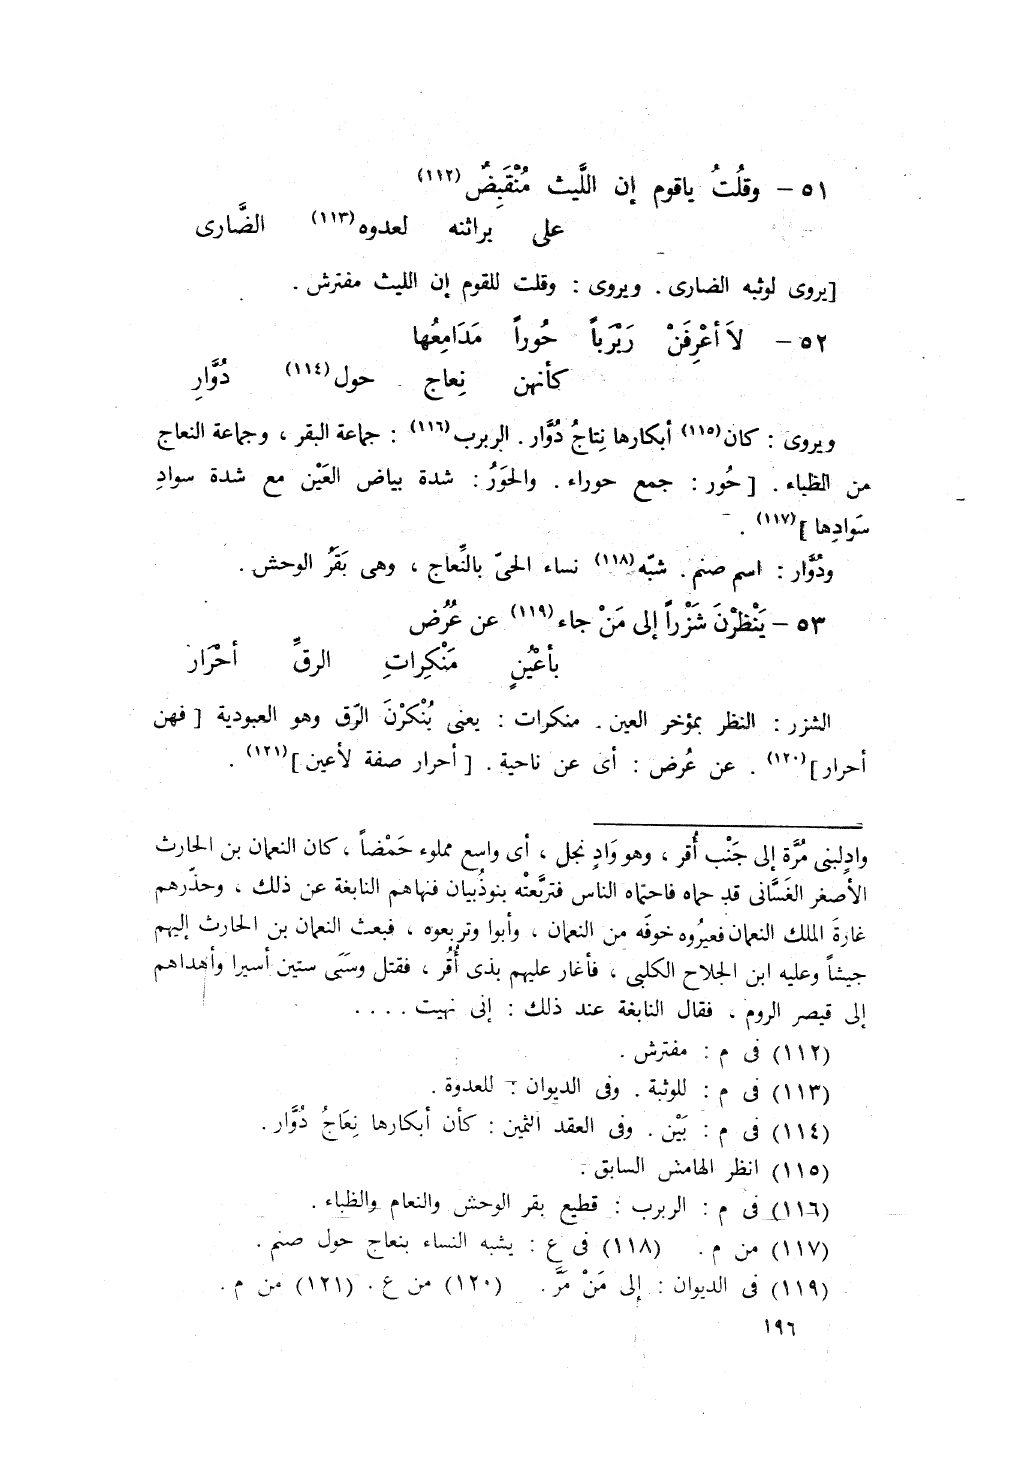 ٥١ – وقلُتُ ياقوم إن اللَّيث مُنْقَبِضٌ (١١٢)
على براثنه لعدوه (١١٣) الضَّارى
[يروى لوثبه الضارى . ويروى : وقلت للقوم إن الليث مفترش .
٥٢ – لاَ أعْرِفَنْ رَبْرَباً حُوراً مَدَامِعُها
كأنهن نِعاج حول (١١٤) دُوَّارِ
ويروى : كان (١١٥) أبكارها نِتاجُ دُوَّار . الربرب (١١٦) : جماعة البقر ، وجماعة النعاج
من الظباء . [ حُور : جمع حوراء . والحَوَرُ : شدة بياض العَيْن مع شدة سوادِ
سَوادِها ] (١١٧) .
ودُوَّار : اسم صنم . شبّه (١١٨) نساء الحىّ بالنِّعاج ، وهى بَقَرُ الوحش .
٥٣ – يَنْظرْنَ شَزْراً إلى مَنْ جاء (١١٩) عن عُرُض
بأعْيُنٍ مَنْكِراتِ الرقِّ أحْرَار
الشزر : النظر بمؤخر العين . منكرات : يعنى يُنْكرْنَ الرّق وهو العبودية [ فهن
أحرار ] (١٢٠) . عن عُرض : أى عن ناحية . [ أحرار صفة لأعين ] (١٢١) .
وادٍلبنى مُرَّة إلى جَنْب أُقر ، وهو وَادٍ نجل ، أى واسع مملوء حَمْضاً ، كان النعمان بن الحارث
الأصغر الغَسَّانى قد حماه فاحتماه الناس فتربَّعتْه بنوذُبيان فنهاهم النابغة عن ذلك ، وحذّرهم
غارةَ الملك النعمان فعيرُوه خوفَه من النعمان ، وأبوا وتربعوه ، فبعث النعمان بن الحارث إليهم
جيشاً وعليه ابن الجلاح الكلبى ، فأغار عليهم بذى أُقُر ، فقتل وسَبَى ستين أسيرا وأهداهم
إلى قيصر الروم ، فقال النابغة عند ذلك : إنى نهيت . . . .
(١١٢) فى م : مفترش .
(١١٣) فى م : للوثبة . وفى الديوان : للعدوة .
(١١٤) فى م : بَيْن . وفى العقد الثمين : كأن أبكارها نِعَاجُ دُوَّار .
(١١٥) انظر الهامش السابق .
(١١٦) فى م : الربرب : قطيع بقر الوحش والنعام والظباء .
(١١٧) من م . (١١٨) فى ع : يشبه النساء بنعاج حول صنم .
(١١٩) فى الديوان : إلى مَنْ مَرَّ . (١٢٠) من ع . (١٢١) من م .
١٩٦